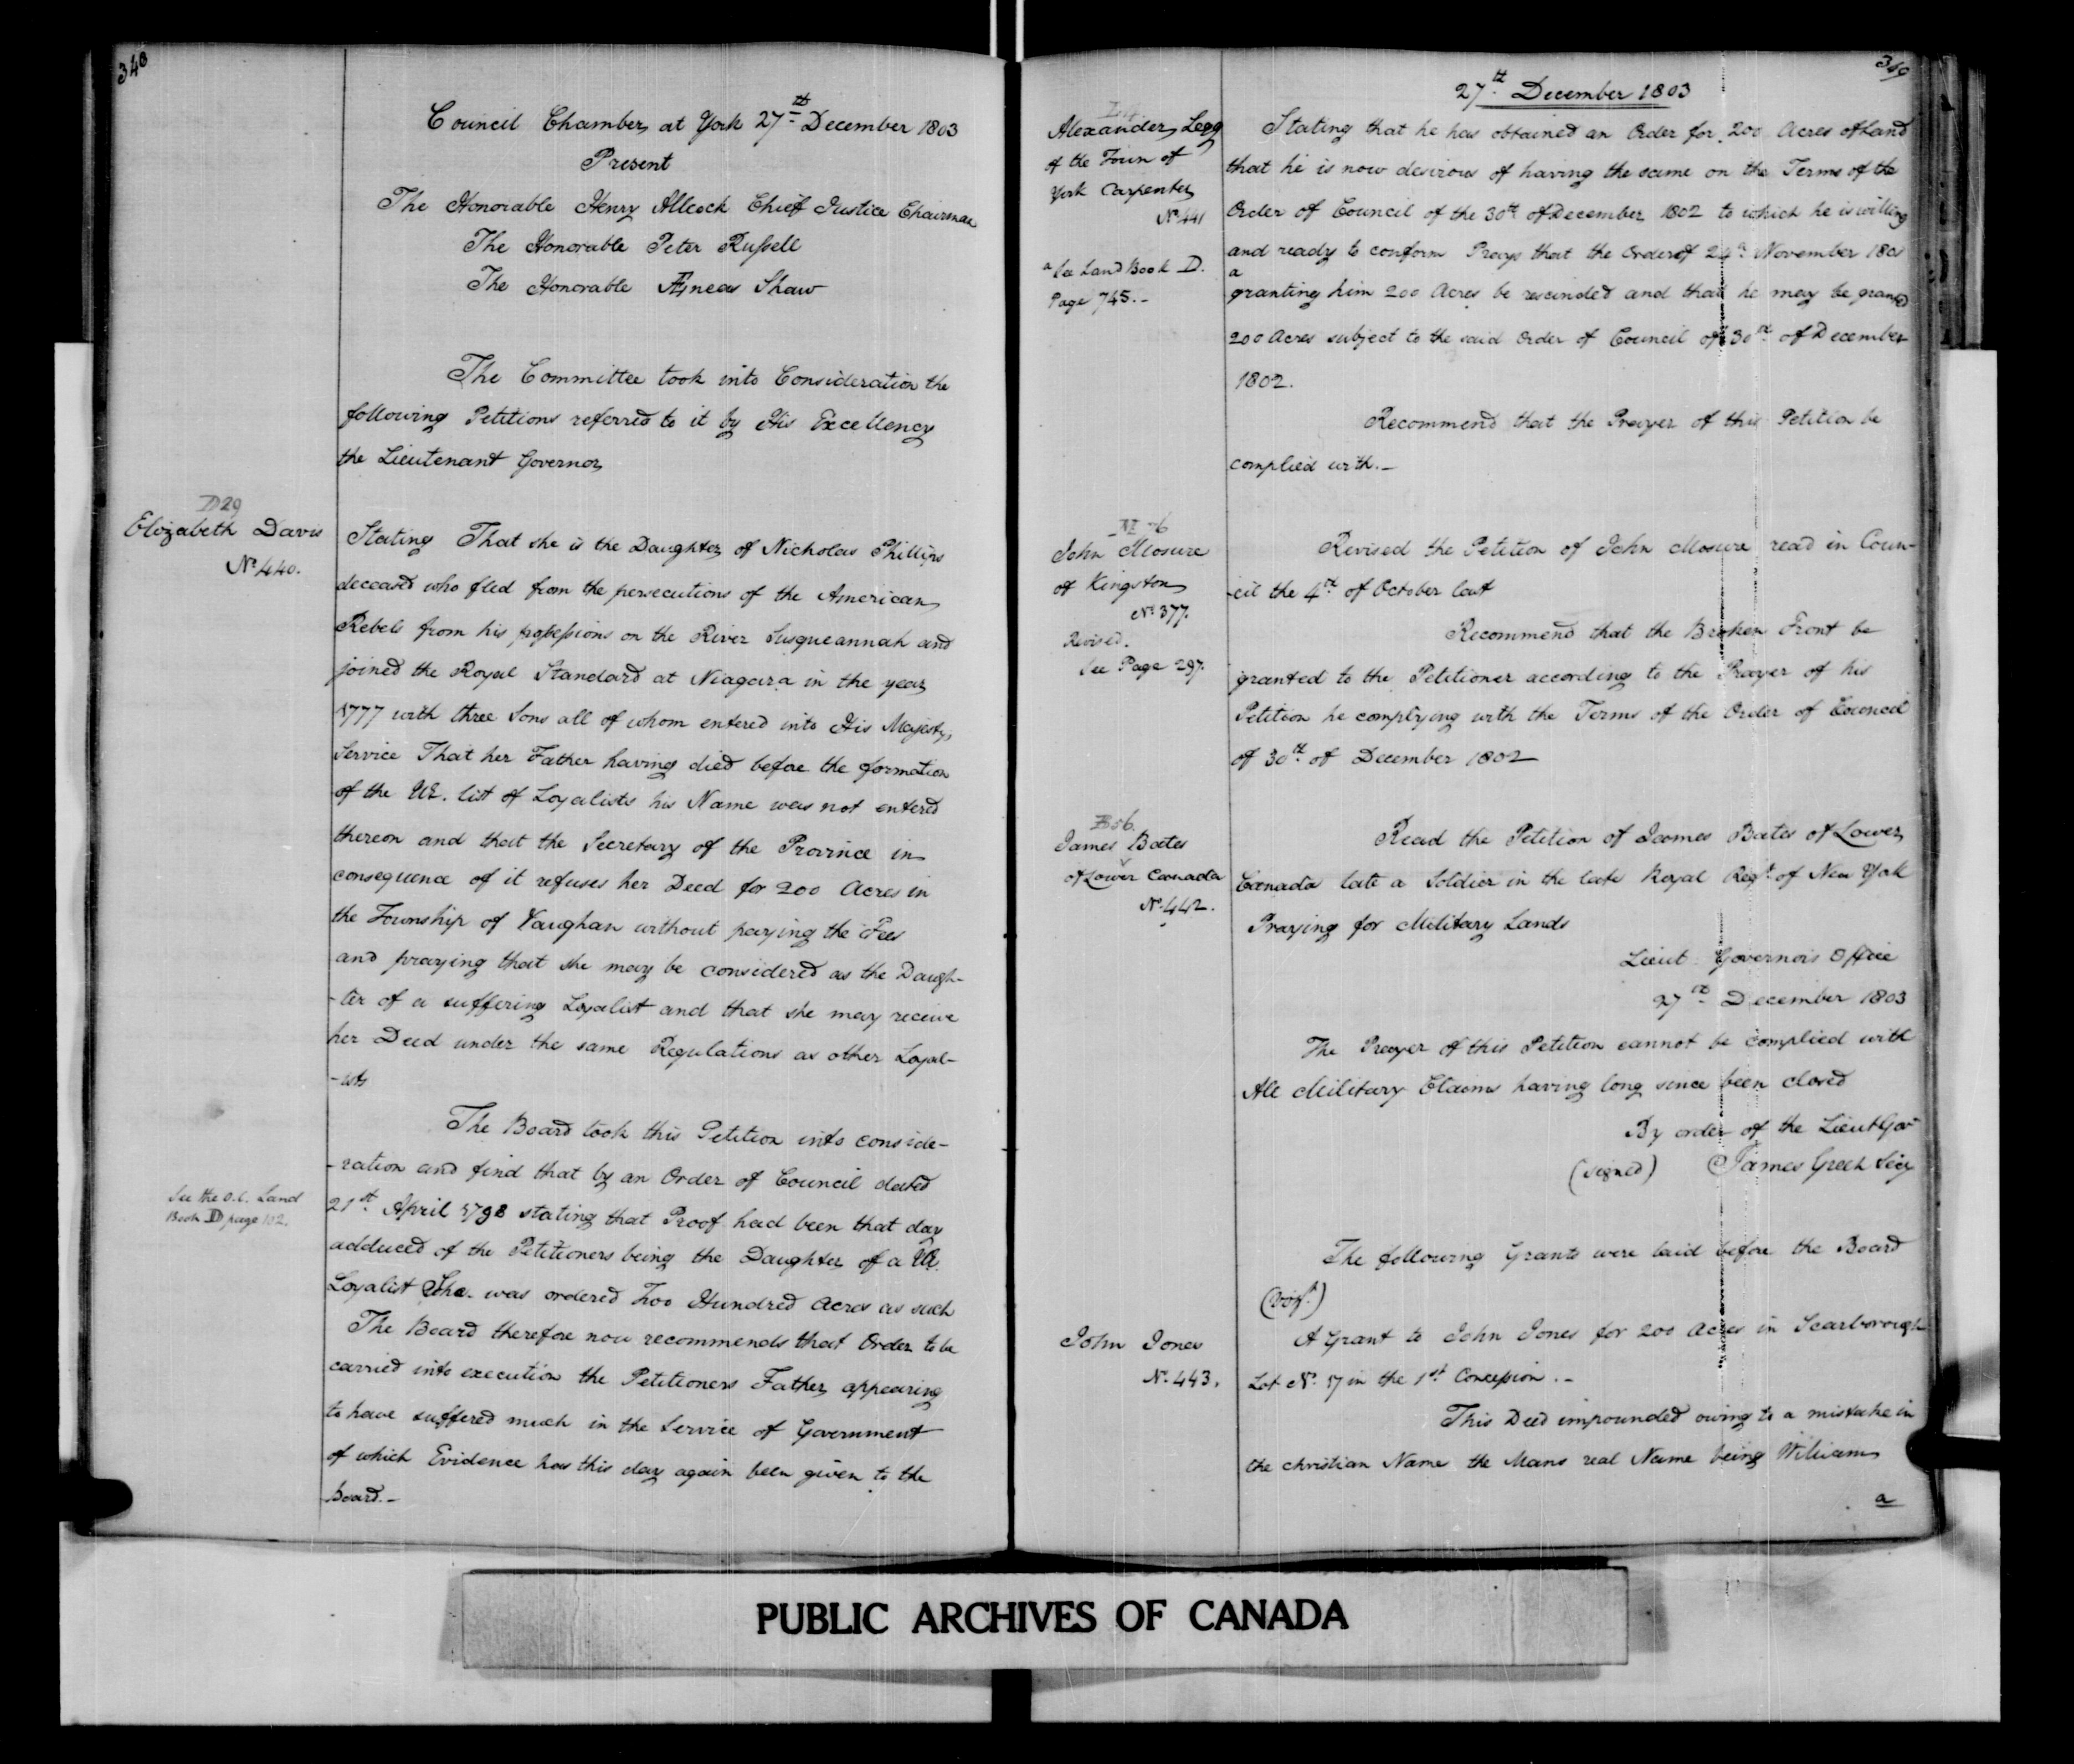 348
Council Chamber at York 27th December 1803
Present
The Honorable Henry Allcock Chief Justice Chairman
The Honorable Peter Russell
The Honorable Æneas Shaw
The Committee took into Consideration the
following Petitions referred to it by His Excellency
the Lieutenant Governor
D29
Elizabeth Davis
No 440.
Stating That she is the Daughter of Nicholas Phillips
deceased who fled from the persecutions of the American
Rebels from his possessions on the River Susqueannah and
joined the Royal Standard at Niagara in the year
1777 with three Sons all of whom entered into His Majesty's
Service That her Father having died before the formation
of the UE. list of Loyalists his Name was not entered
thereon and that the Secretary of the Province in
consequence of it refuses her Deed for 200 Acres in
the Township of Vaughan without paying the Fees
and praying that she may be considered as the Daugh-
-ter of a suffering Loyalist and that she may receive
her Deed under the same Regulations as other Loyal-
-ists
The Board took this Petition into conside-
-ration and find that by an Order of Council dated
See the O.C. Land
Book D page 102.
21st April 1798 stating that Proof had been that day
adduced of the Petitioners being the Daughter of a UE.
Loyalist She was ordered Two Hundred Acres as such
The Board therefore now recommends that Order to be
carried into execution the Petitioners Father appearing
to have suffered much in the Service of Government
of which Evidence has this day again been given to the
board.-
27th December 1803
Alexander Legg
of the Town of
York Carpenter
No 441
a See Land Book D.
Page 745.-
Stating that he has obtained an Order for 200 Acres of Land
that he is now desirous of having the same on the Terms of the
Order of Council of the 30th of December 1802 to which he is willing
and ready to conform Prays that the Order of 24th November 180
a
granting him 200 Acres be rescinded and that he may be granted
200 Acres subject to the said Order of Council of 30th of December
1802.
Recommend that the Prayer of this Petition be
complied with.-
John Mosure
of Kingston
No 377.
Revised.
See Page 297.
Revised the Petition of John Mosure read in Coun-
-cil the 4th of October last
Recommend that the Broken Front be
granted to the Petitioner according to the Prayer of his
Petition he complying with the Terms of the Order of Council
of 30th of December 1802
B56
James Bates
of Lower Canada
No 442.
Read the Petition of James Bates of Lower
Canada late a Soldier in the late Royal Regt of New York
Praying for Military Lands
Lieut Governors Office
27th December 1803
The Prayer of this Petition cannot be complied with
All Military Claims having long since been closed
By order of the Lieut Govr
(signed) James Green Secy
The following Grants were laid before the Board
(Vizt)
John Jones
No 443.
A Grant to John Jones for 200 Acres in Scarborough
Lot No 17 in the 1st Concession.-
This Deed impounded owing to a mistake in
the christian Name the Mans real Name being William
a
PUBLIC ARCHIVES OF CANADA